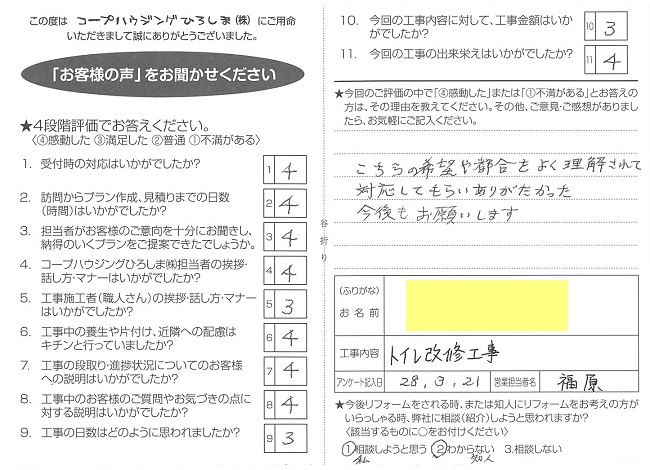 この度は コープハウジングひろしま(株) にご用命
いただきまして誠にありがとうございました。
「お客様の声」をお聞かせください
★4段階評価でお答えください。
〈④感動した ③満足した ②普通 ①不満がある〉
1. 受付時の対応はいかがでしたか?
1 4
2. 訪問からプラン作成、見積りまでの日数
(時間)はいかがでしたか?
2 4
3. 担当者がお客様のご意向を十分にお聞きし、
納得のいくプランをご提案できたでしょうか。
3 4
4. コープハウジングひろしま㈱担当者の挨拶・
話し方・マナーはいかがでしたか?
4 4
5. 工事施工者(職人さん)の挨拶・話し方・マナー
はいかがでしたか?
5 3
6. 工事中の養生や片付け、近隣への配慮は
キチンと行っていましたか?
6 4
7. 工事の段取り・進捗状況についてのお客様
への説明はいかがでしたか?
7 4
8. 工事中のお客様のご質問やお気づきの点に
対する説明はいかがでしたか?
8 4
9. 工事の日数はどのように思われましたか?
9 3
谷折り
10. 今回の工事内容に対して、工事金額はいか
がでしたか?
10 3
11. 今回の工事の出来栄えはいかがでしたか?
11 4
★今回のご評価の中で「④感動した」または「①不満がある」とお答え
の方は、その理由を教えてください。その他、ご意見・ご感想がありまし
たら、お気軽にご記入ください。
こちらの希望や都合をよく理解されて
対応してもらいありがたかった
今後もお願いします
(ふりがな)
お名前
工事内容 トイレ改修工事
アンケート記入日 28.3.21 営業担当者名 福原
★今後リフォームをされる時、または知人にリフォームをお考えの方が
いらっしゃる時、弊社に相談(紹介)しようと思われますか?
〈該当するものに○をお付けください〉
①相談しようと思う ②わからない 3.相談しない
私 知人